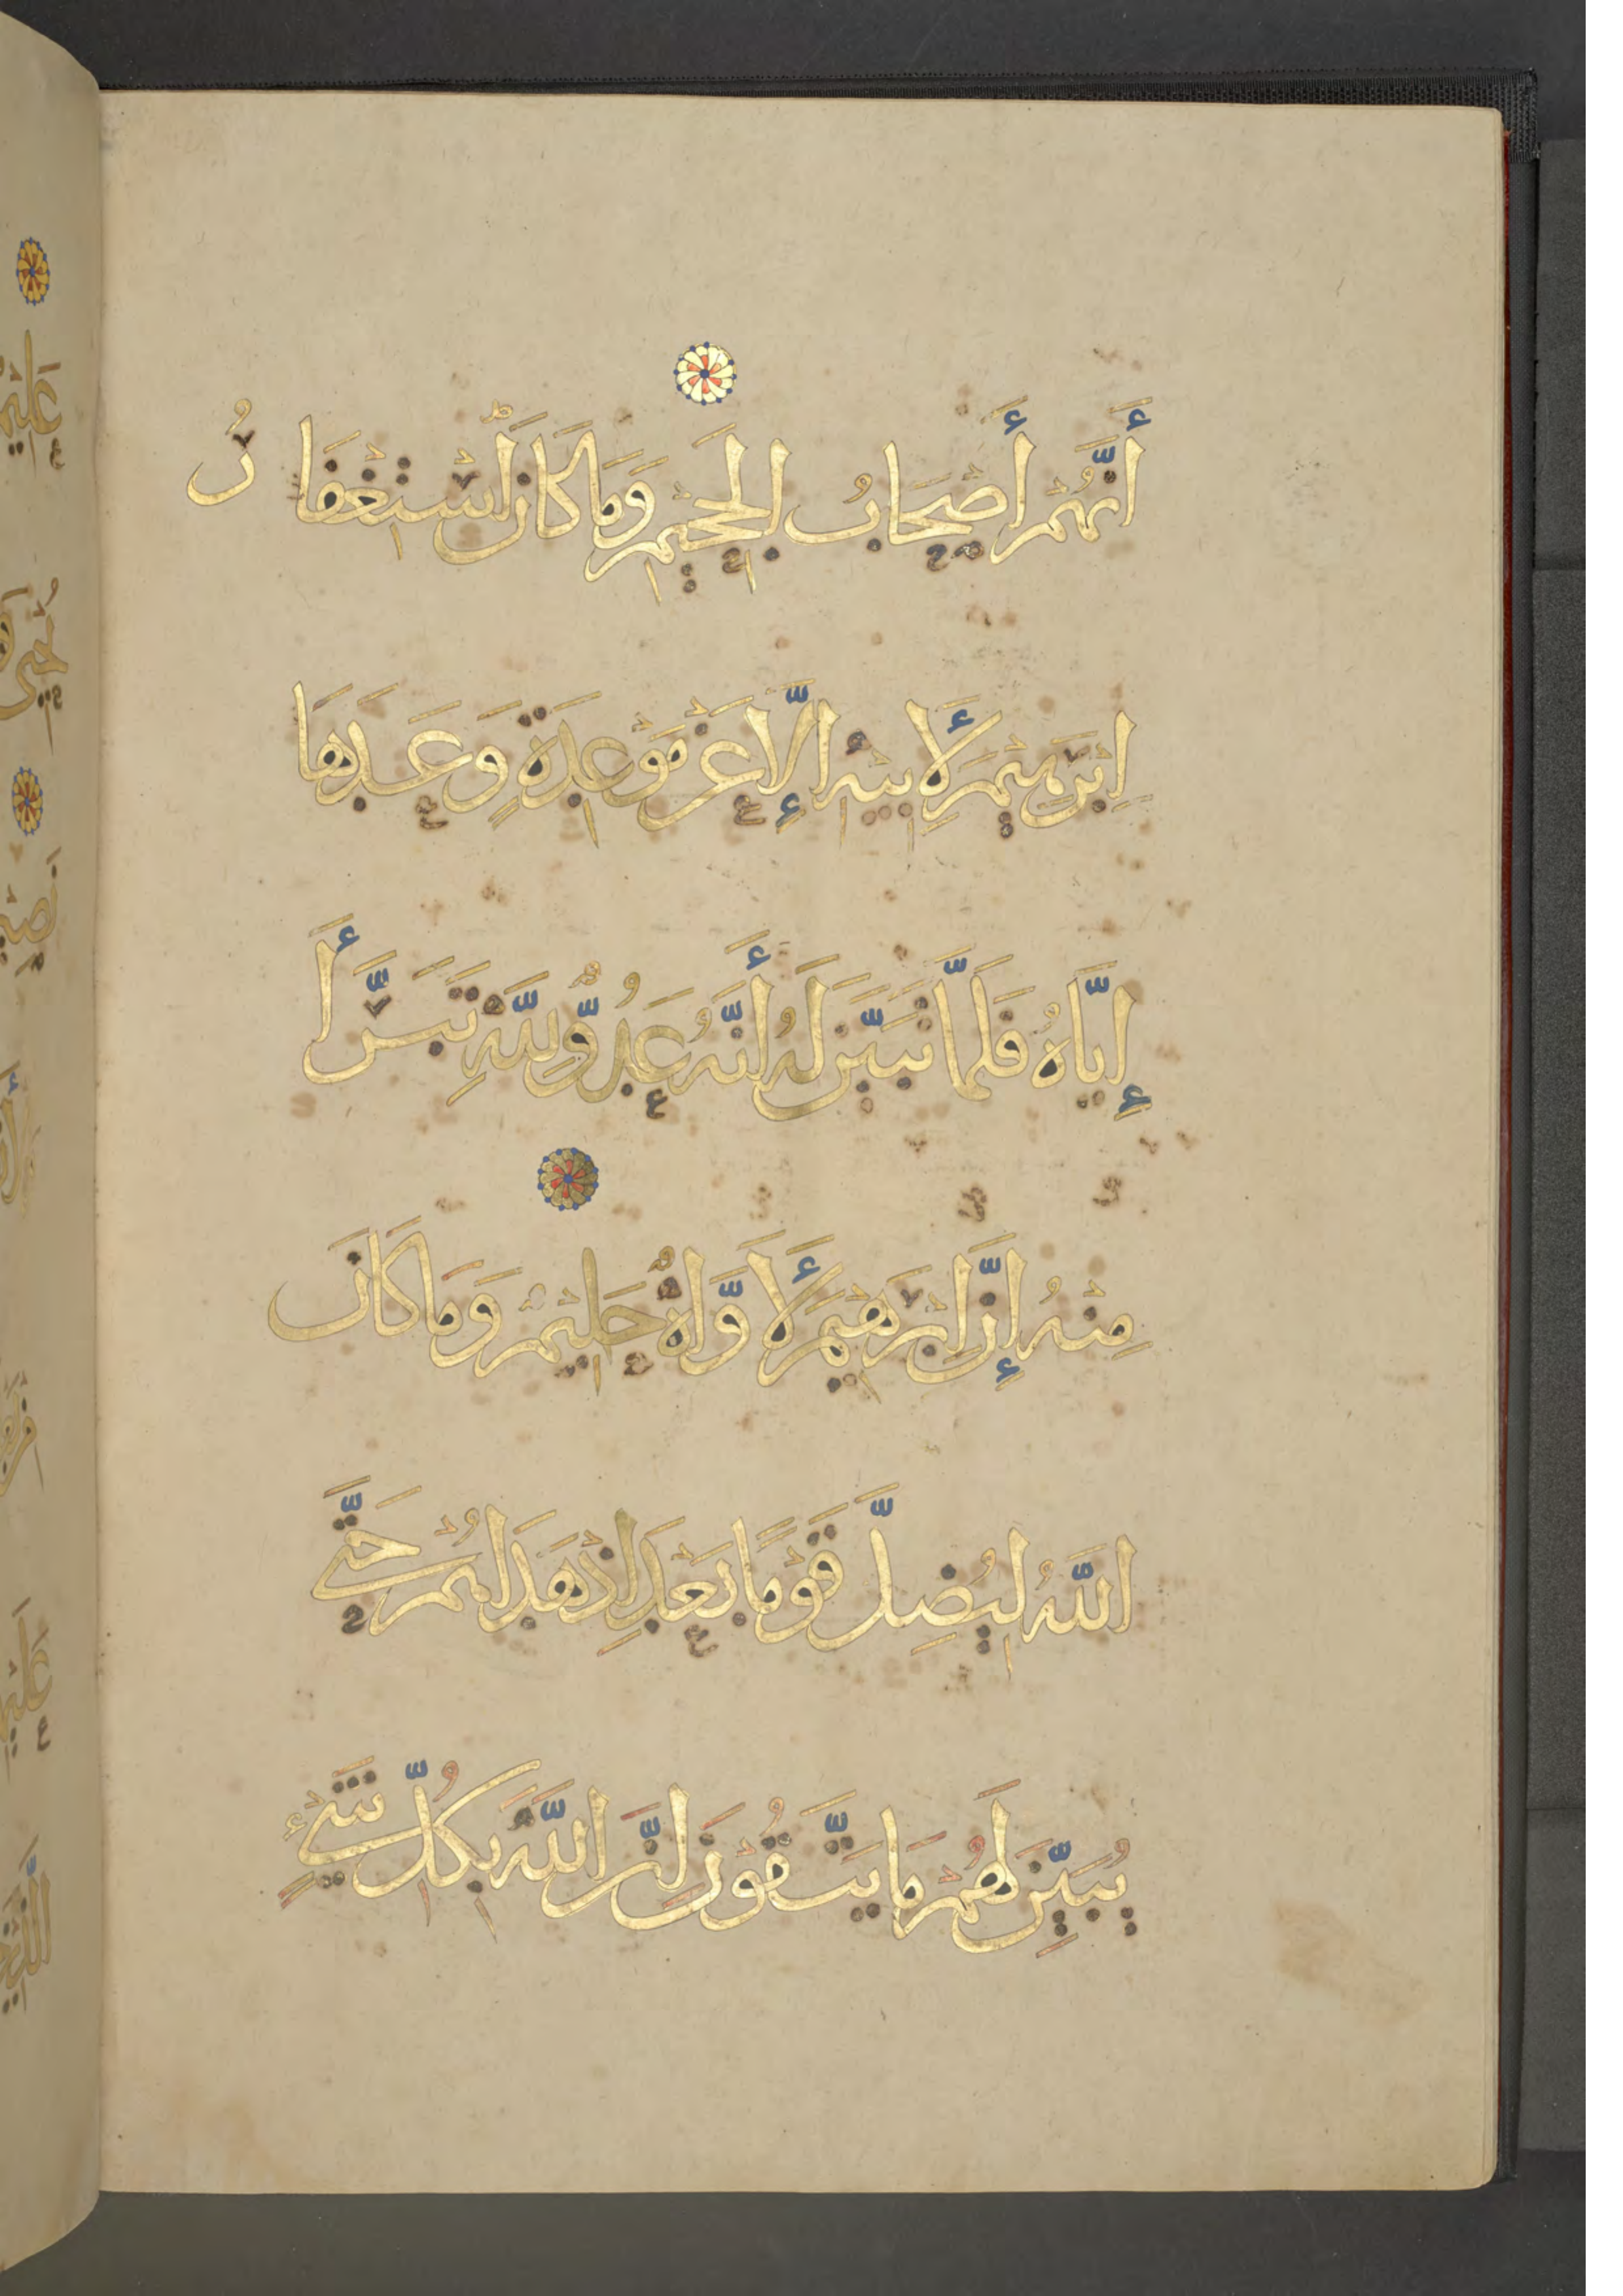 أَنَّهُمْ أَصْحَابُ الْجَحِيمِ وَمَا كَانَ اسْتِغْفَارُ
اِبْرَهِيمَ لِأَبِيهِ إِلَّا عَنْ مَوْعِدَةٍ وَعَدَهَا
إِيَّاهُ فَلَمَّا تَبَيَّنَ لَهُ أَنَّهُ عَدُوٌّ لِلَّهِ تَبَرَّأَ
مِنْهُ إِنَّ اِبْرَهِيمَ لَأَوَّاهٌ حَلِيمٌ وَمَا كَانَ
اللَّهُ لِيُضِلَّ قَوْمًا بَعْدَ اِذْ هَدَاهُمْ حَتَّى
يُبَيِّنَ لَهُمْ مَا يَتَّقُونَ اِنَّ اللَّهَ بِكُلِّ شَيْءٍ